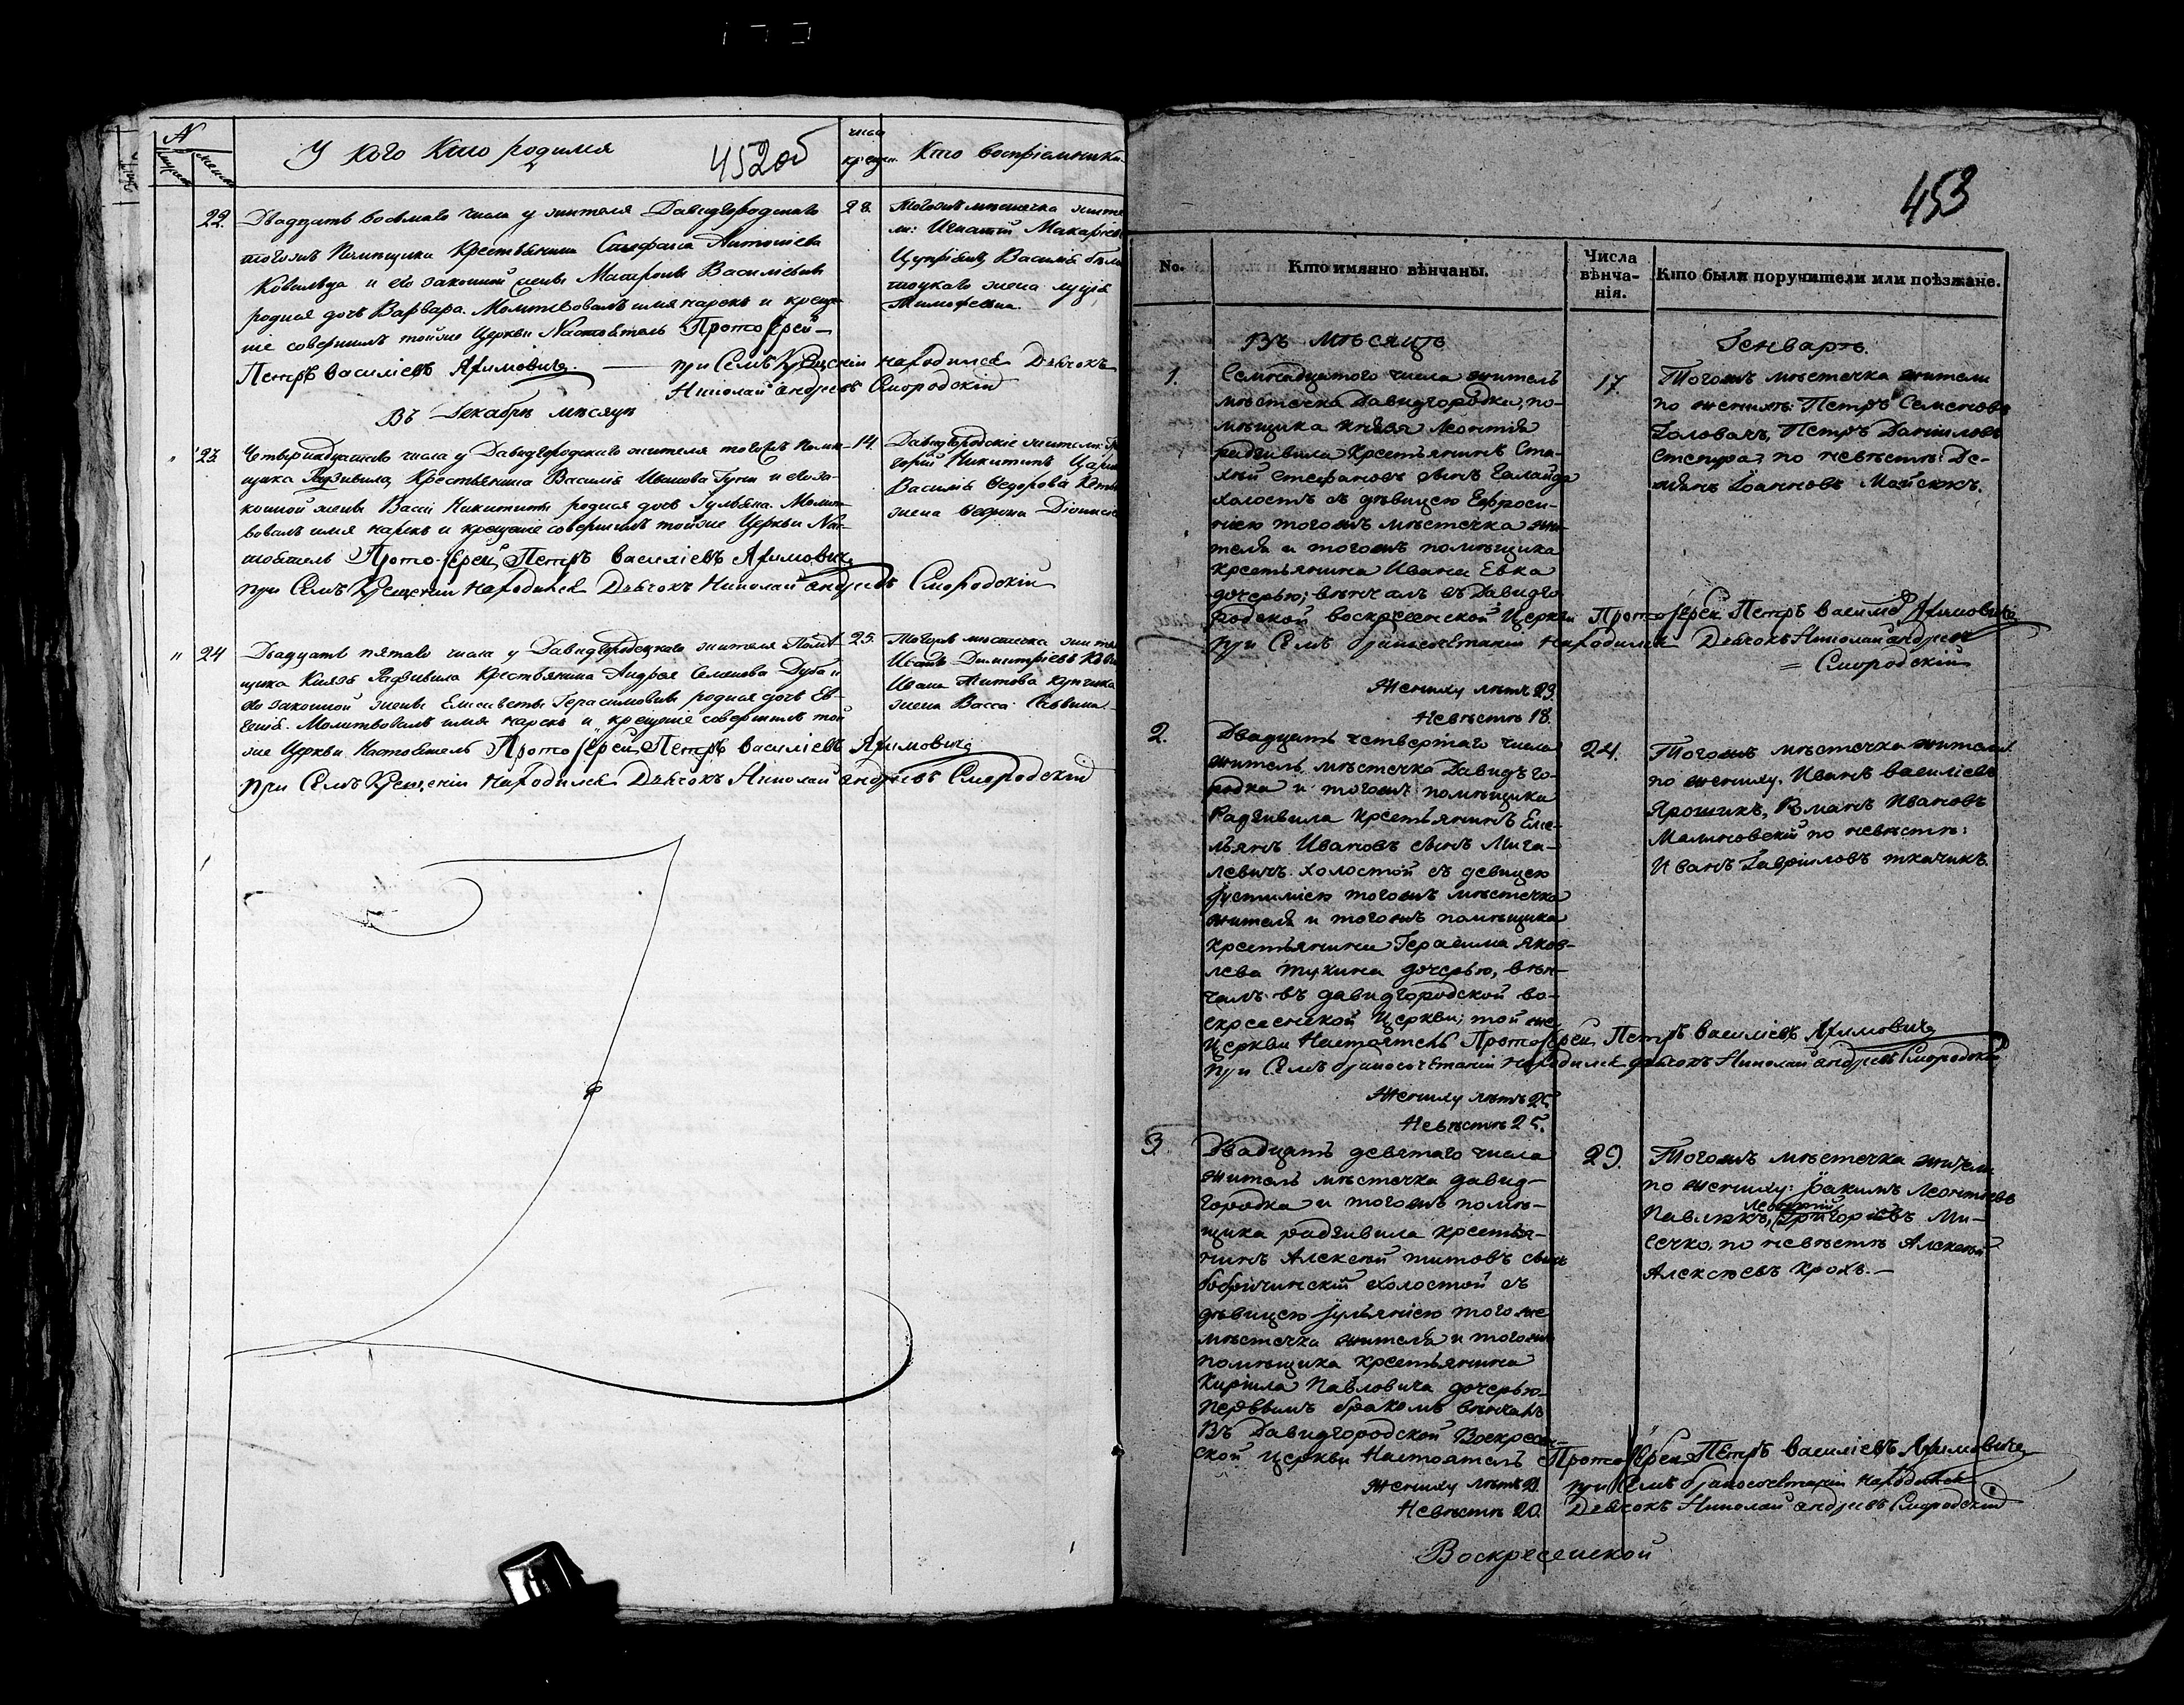 №
мужеска
женска
У кого кто родился
452об
число
крещен.
Кто воспріемники
22.
Двадцать восьмаго числа у жителя Давидгородскаго
тогожъ Помѣщика Крестьянина Стефана Антоніева
и его законной жены Матроны Василіевны
родися дочь Варвара. Молитвовалъ имя нарекъ и креще-
ніе совершилъ тойже Церкви Настоятель Протоіерей
Петръ Василіевъ Акимовичъ.
при Семъ Крещеніи находился Дьячокъ
Николай андреевъ Смородскій
28.
Тогожъ мѣстечка жите-
ли: Игнатій Макаріевъ
Василія
жена
Тимофеевна
Въ Декабрѣ мѣсяцѣ
23.
Четырнадцатаго числа у Давидгородскаго жителя тогожъ Помѣ-
щика Радзивила, Крестьянина Василія Иванова и его за-
конной жены Вассы Никитины родися дочь Іуліана. Молит-
вовалъ имя нарекъ и крещеніе совершилъ тойже Церкви На-
стоятель Протоіерей Петръ Василіевъ Акимовичъ
при Семъ Крещеніи находился Дьячокъ Николай андреевъ Смородскій
14.
Давидгородскіе жители: Гри-
горій Никитинъ
Василія Ѳедорова
жена
24
Двадцать пятаго числа у Давидгородецкаго жителя Помѣ-
щика Князя Радзивила Крестьянина Андрея Семенова Дуба и
его законной жены Елисаветы Герасимовны родися дочь Ев-
генія. Молитвовалъ имя нарекъ и крещеніе совершилъ той
же Церкви Настоятель Протоіерей Петръ Василіевъ Акимовичъ
при Семъ Крещеніи находился Дьячокъ Николай андреевъ Смородскій
25.
Тогожъ мѣстечка жители
Иванъ Димитріевъ
Ивана Титова
жена Васса Саввина
453
No.
Кто имянно вѣнчаны.
Числа
вѣнча-
нія.
Кто были поручители или поѣзжане.
Въ мѣсяцѣ
Генварѣ.
1.
Семнадцатого числа житель
мѣстечка Давидгородка, по-
мѣщика князя Леонтія
радзивила Крестьянинъ Ста-
хій стефановъ сынъ Галайда
холостъ съ дѣвицею Ефроси-
ніею тогожъ мѣстечка жи-
теля и тогожъ помѣщика
крестьянина Ивана Евка
дочерью; вѣнчалъ въ Давидго-
родской воскресенской Церкви Протоіерей Петръ Василіев Акимовичъ
при Семъ бракосочетаніи находился Дьячокъ Николай андреев
= Смородскій
Жениху лѣтъ 23.
Невѣстѣ 18.
17.
Тогожъ мѣстечка жители
по женихѣ: Петръ Семеновъ
Головачъ, Петръ Даниловъ
Стенура по невѣстѣ: Де-
Іоанновъ Мойсюкъ.
2.
Двадцать четвертаго числа
житель мѣстечка Давидъ го-
родка и тогожъ помѣщика
Радзивила крестьянинъ Еме-
льянъ Ивановъ сынъ Мига-
левичъ. холостой съ девицею
Іустиніею тогожъ мѣстечка
жителя и тогожъ помѣщика
крестьянина Герасима Яков-
лева тукина дочерью, вѣн-
чалъ въ давидгородской во-
скресенской Церкви; той же
Церкви Настоятель Протоіерей Петръ Василіевъ Акимовичъ
при Семъ бракосочетаніи находился дьячокъ Николай андреевъ Смородскій
Жениху лѣтъ 25
Невѣстѣ 25.
24.
Тогожъ мѣстечка жители
по жениху. Иванъ Василіевъ
Ярошикъ, Романъ Ивановъ
Малиновскій по невѣстѣ:
Иванъ Гавріиловъ ткачикъ.
3.
Двадцать девятаго числа
житель мѣстечка давид-
городка и тогожъ помѣ-
щика радзивила крестья-
нинъ Алексѣй титовъ сынъ
бобричинскій холостой съ
дѣвицею Іульяніею того же
мѣстечка жителя и тогожъ
помѣщика крестьянина
Кирила Павловича дочерью
первымъ бракомъ вѣнчалъ
Въ Давидгородской Воскресен-
ской церкви Настоятель Протоіерей Петръ Василіевъ Акимовичъ
Жениху лѣтъ 21.
при Семъ бракосочетаніи находился
Невѣстѣ 20.
Дьячокъ Николай андреевъ Смородскій
29.
Тогожъ мѣстечка жители
по жениху: Іоакимъ Леонтіевъ
Павлюкъ, Григоріевъ Ми-
сечко, по невѣстѣ Алексѣй
Алексѣевъ Крохъ.—
Воскресенской